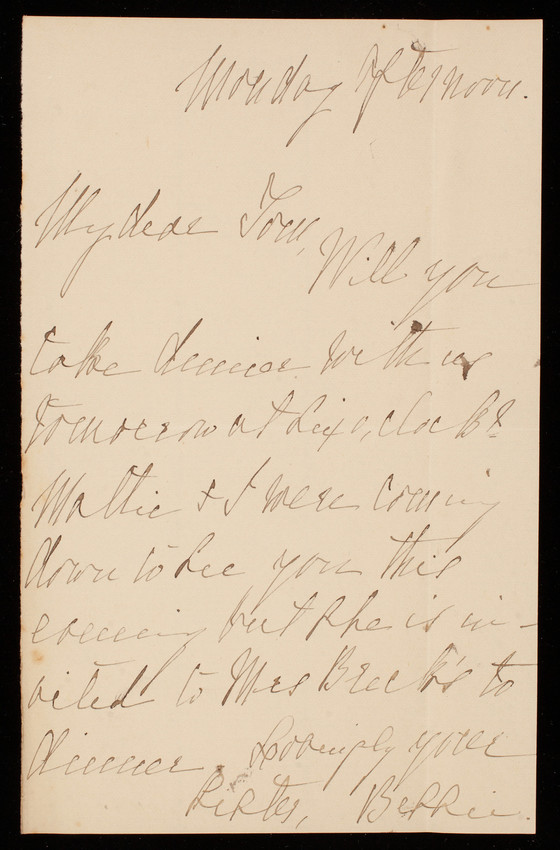 Monday Afternoon.
My dear Tom,
Will you
take dinner with us
tomorrow at six o,clock?
Mattie & I were coming
down to see you this
evening but she is in-
vited to Mrs Breck's to
dinner. Lovingly your
Sister, Bessie.